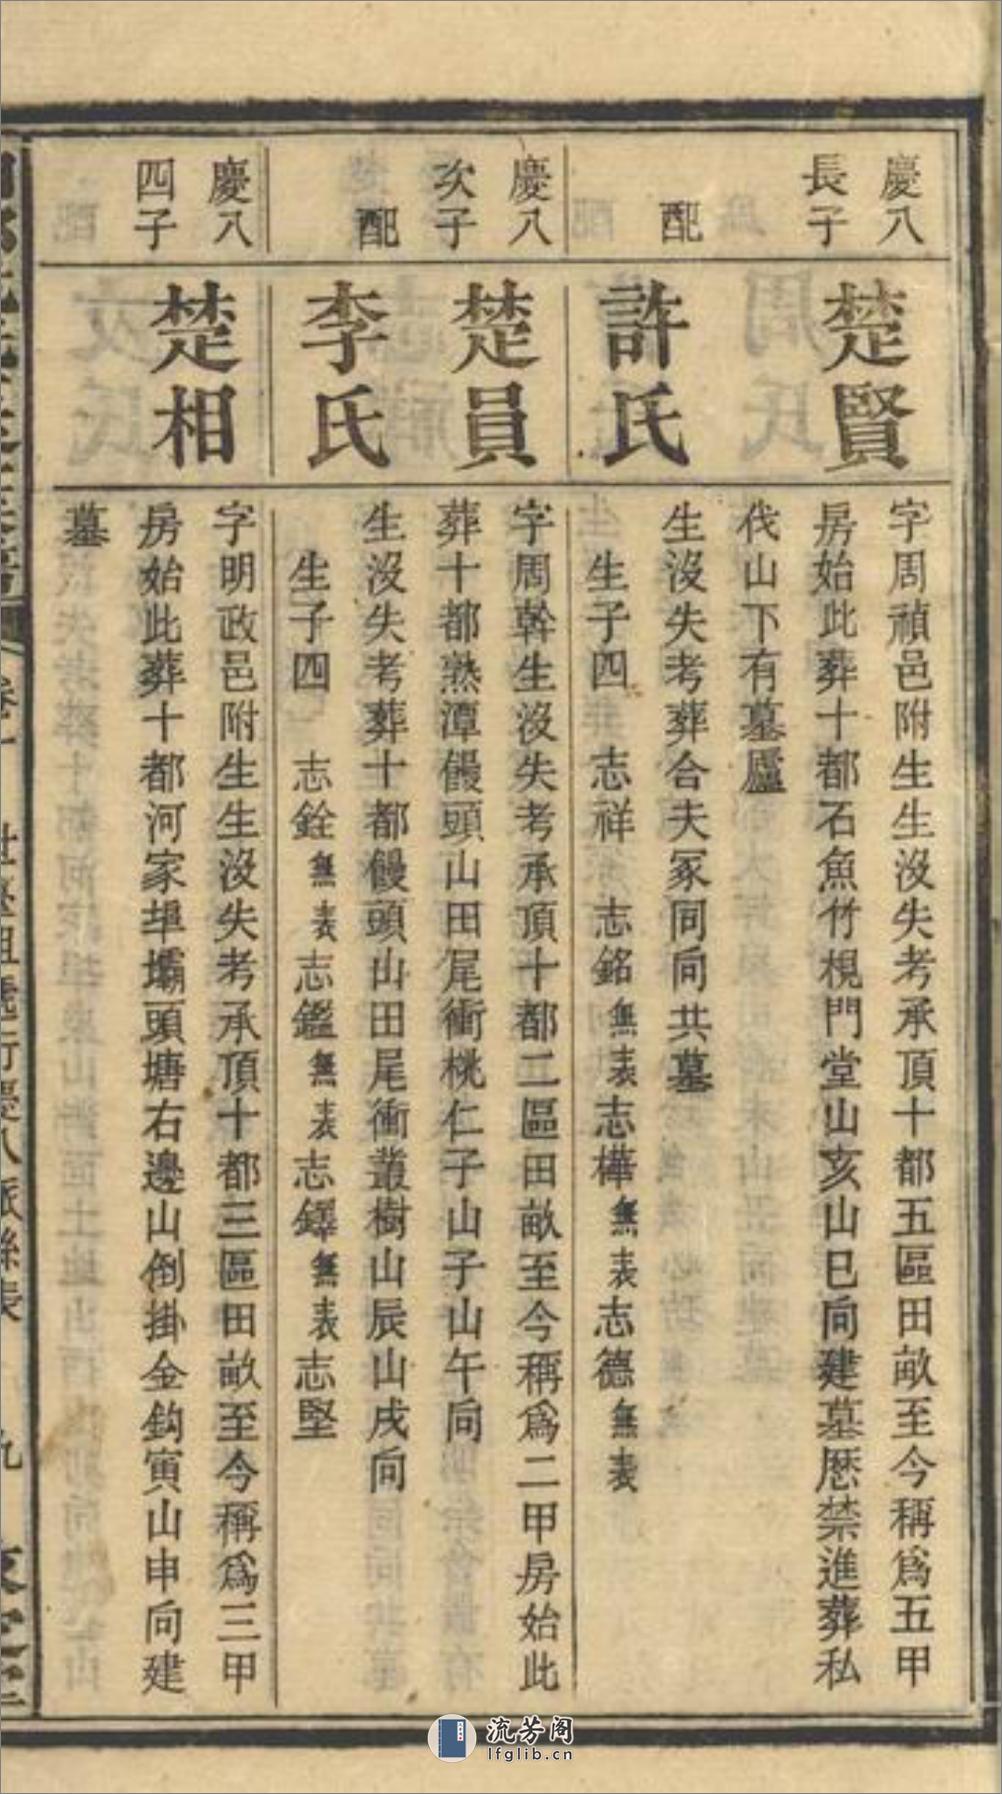 慶八
長子
楚賢
字周禎邑附生生沒失考承頂十都五區田畝至今稱爲五甲
房始此葬十都石魚竹梘門堂山亥山巳向建墓厯禁進葬私
伐山下有墓廬
配
許氏
生沒失考葬合夫冢同向共墓
生子四 志祥 志銘無表志樺無表志德無表
慶八
次子
楚員
字周幹生沒失考承頂十都二區田畝至今稱爲二甲房始此
葬十都熟潭饅頭山田尾衝桃仁子山子山午向
配
李氏
生沒失考葬十都饅頭山田尾衝叢樹山辰山戌向
生子四 志銓無表志鑑無表志鐸無表志堅
慶八
四子
楚相
字明政邑附生生沒失考承頂十都三區田畝至今稱爲三甲
房始此葬十都河家埠壩頭塘右邊山倒掛金鈎寅山申向建
墓
九
流芳阁
lfglib.cn